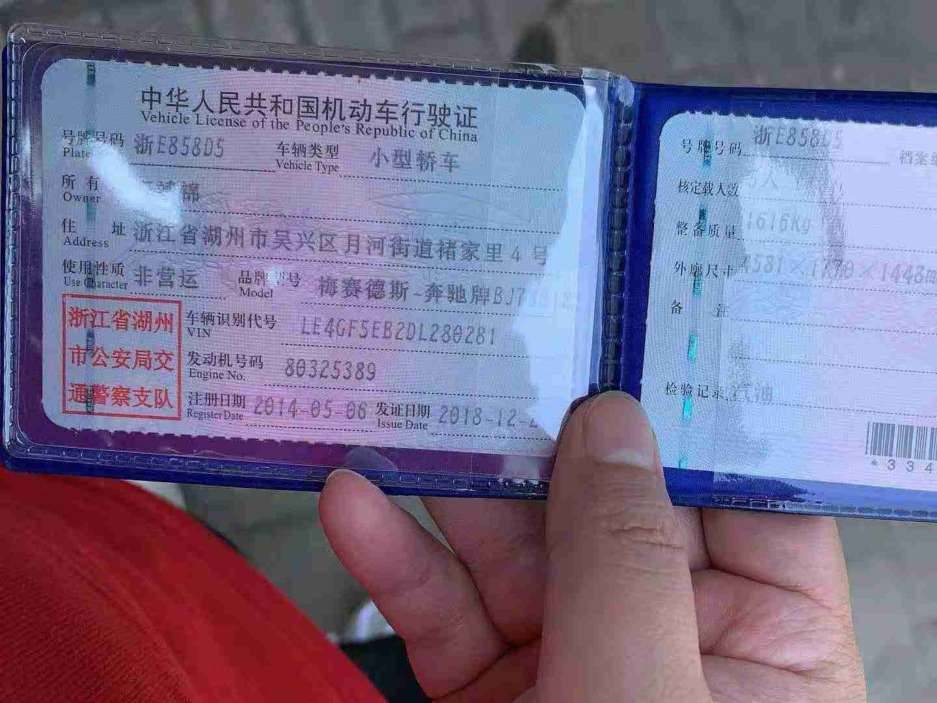 中华人民共和国机动车行驶证
Vehicle License of the People's Republic of China
号牌号码 浙E858D5 车辆类型 小型轿车
Plate Vehicle Type
所有 锦
Owner
住 址 浙江省湖州市吴兴区月河街道褚家里4号
Address
使用性质 非营运 品牌型号 梅赛德斯-奔驰牌BJ7
Use Character Model
浙江省湖州
市公安局交
通警察支队
车辆识别代号 LE4GF5EB2DL280281
VIN
发动机号码 80325389
Engine No.
注册日期 2014-05-06 发证日期 2018-12-
Register Date Issue Date
号牌号码 浙E858D5 档案
核定载人数 人
整备质量 1616Kg
外廓尺寸 4581×1770×1448m
备 注
检验记录 汽油
*334